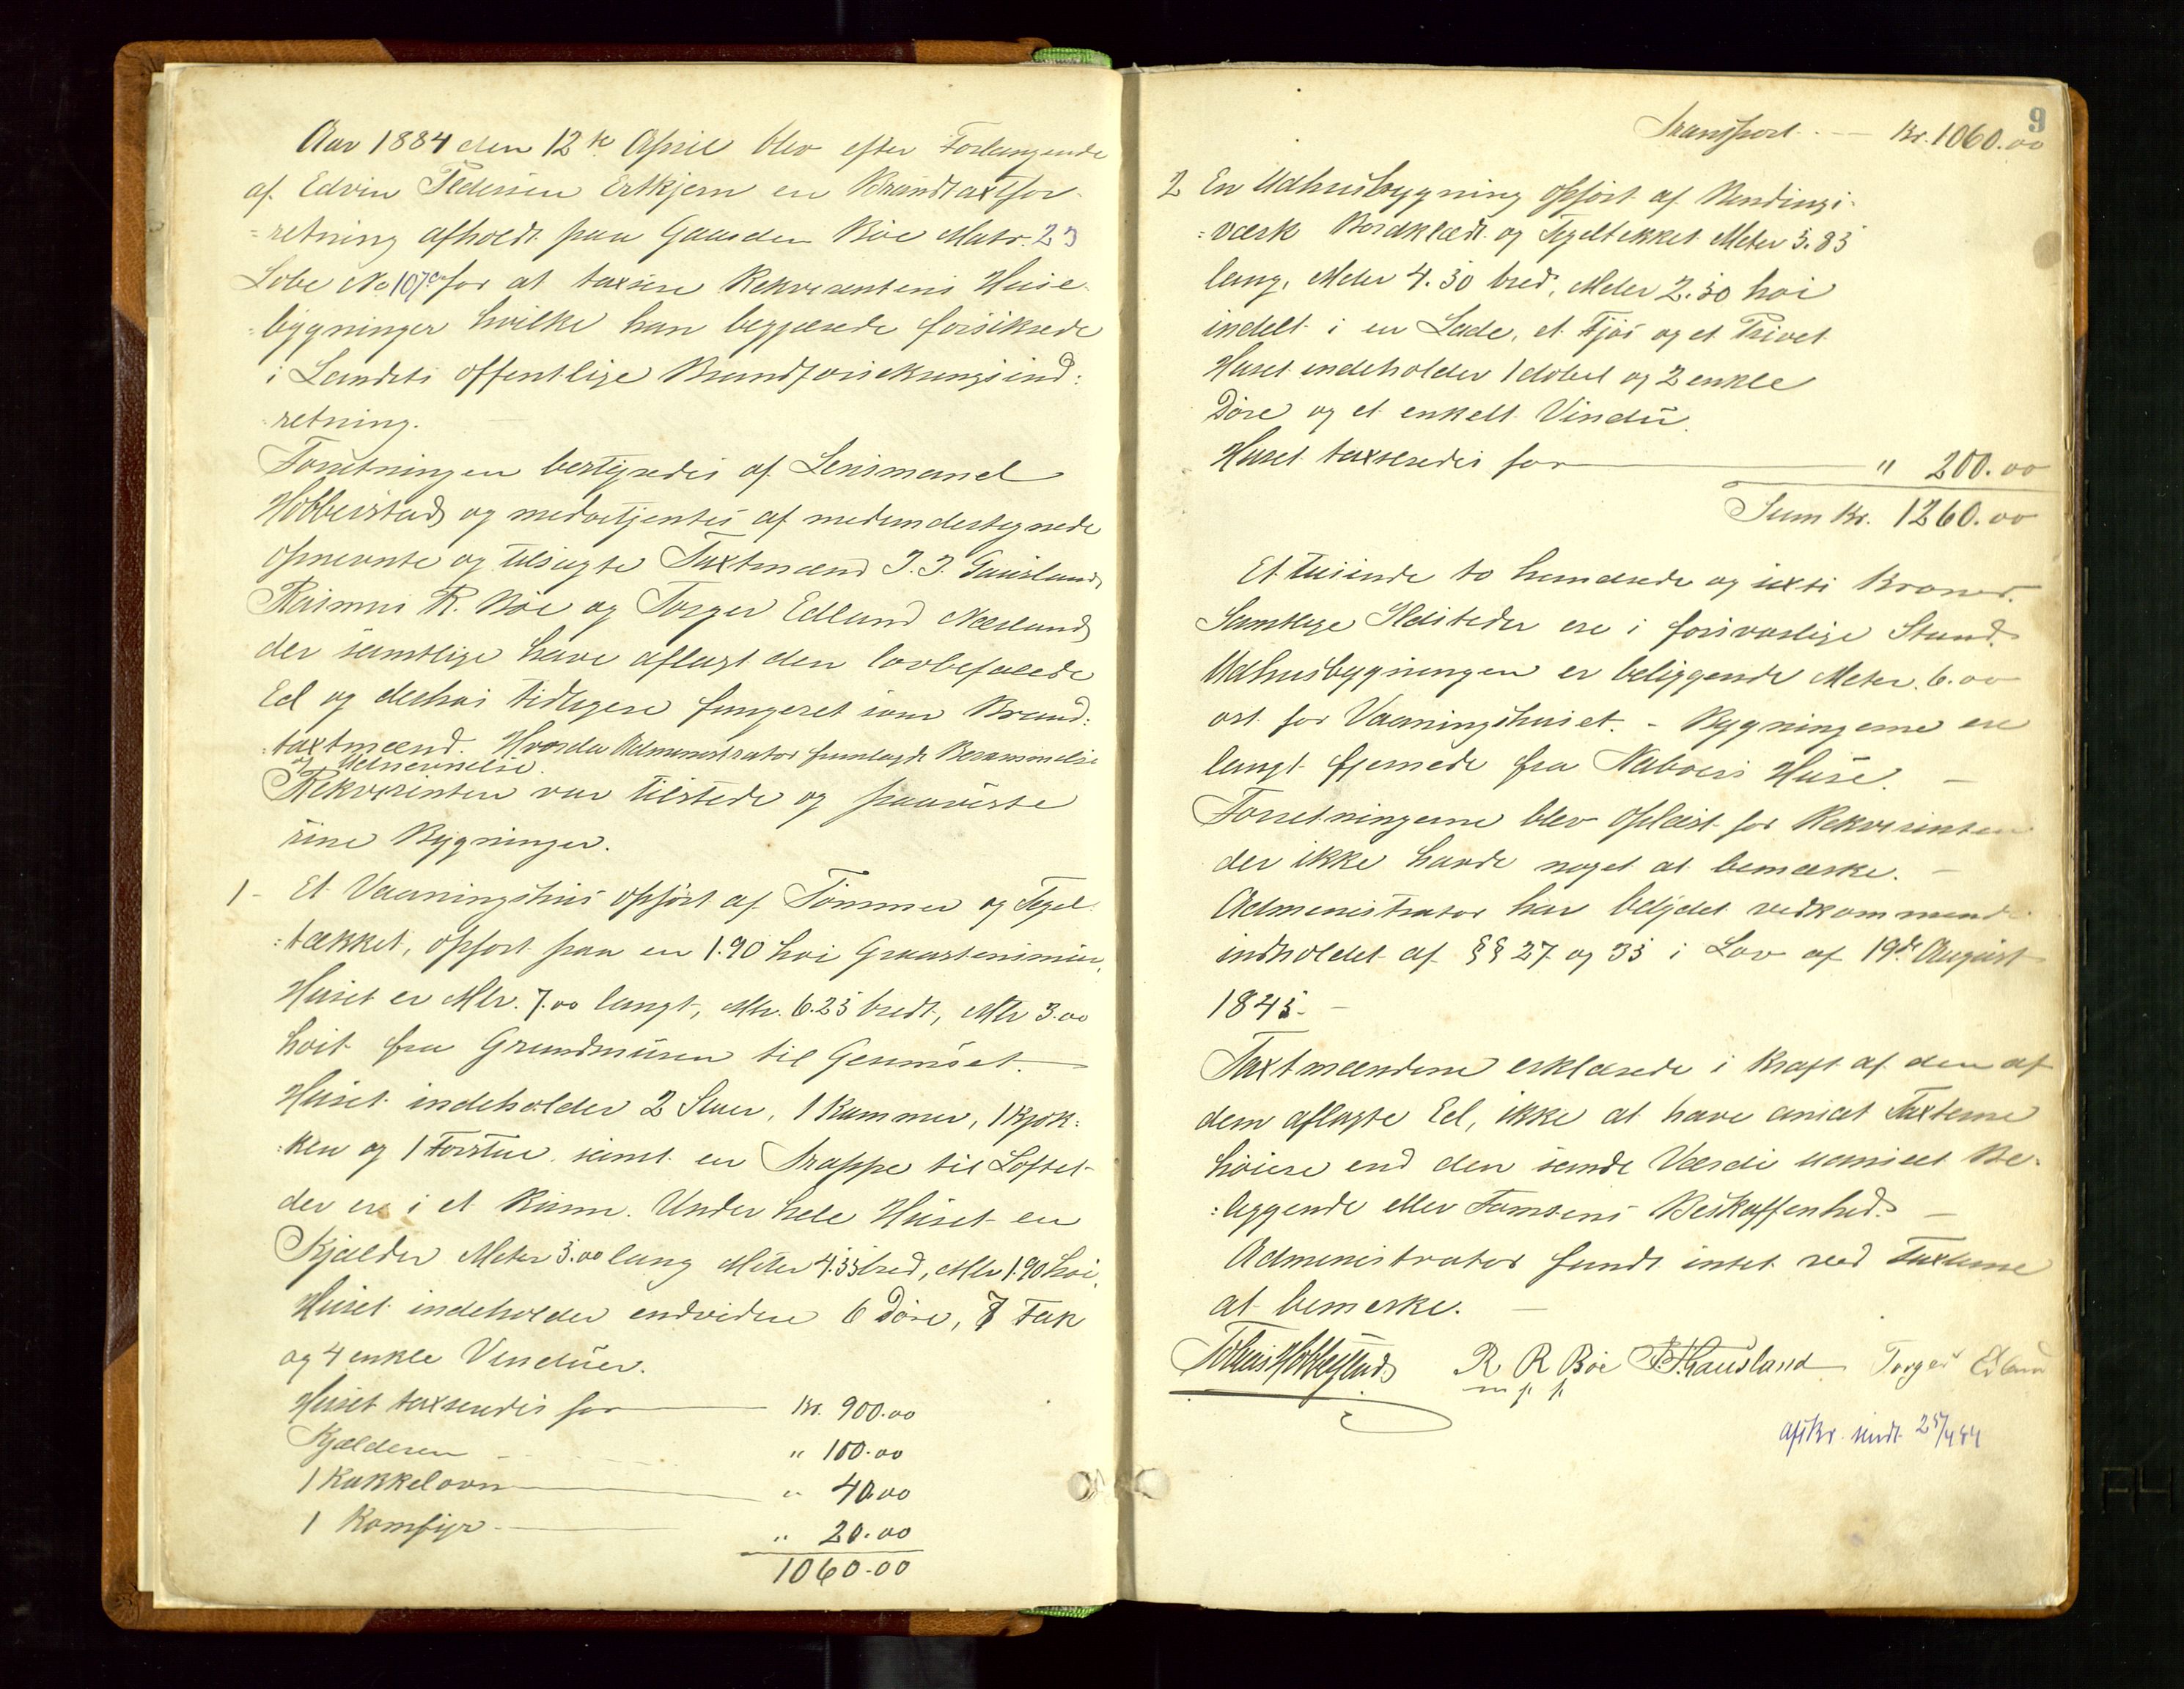 Aar 1884 den 12te April blev efter Forlangende
af Edvin Pedersen Erikjern en Brandtaxtfor-
=retning afholdt paa Gaarden Bøe Matr. 23
Løbe No 107a for at taxere Rekvirentens Huse-
=bygninger hvilke han begjærede forsikrede
i Landets offentlige Brandforsikringsind:
retning.
Forretningen bestyredes af Lensmand
Hobberstad og medbetjentes af medundertegnede
opnevnte og tilsagte Taxtmænd J. J. Gausland
Rasmus R. Bøe og Torger Edland Nærland
der samtlige have aflagt den lovbefalede
Ed og deshos tidligere fungeret som Brand:
:taxtmænd. Hvorda Administrator fremlagde Berammelse
og Udnevnelse.
Rekvirenten var tilstede og paaviste
sine Bygninger.
1- Et Vaaningshus opført af Tømmer og Tegel
:tækket, opført paa en 1.90 høi Graastensmur,
Huset er Mtr. 7.00 langt, Mtr. 6.25 bredt, Mtr 3.00
høit fra Grundmuren til Gesimset.
Huset indeholder 2 Stuer, 1 Kammer, 1 Kjøk:
:ken og 1 Forstue samt en Trappe til Loftet
der er i et Rum. Under hele Huset en
Kjælder Meter 5.00 lang Meter 4.55 bred, Mtr 1.90 høi.
Huset indeholder endvidere 6 Døre, 7 Fak
og 4 enkle Vinduer.
Huset taxeredes for Kr. 900.00
Kjælderen " 100.00
1 Kakkelovn " 40.00
1 Komfyr " 20.00
1060.00
9
Transport - Kr. 1060.00
2 En Udhusbygning opført af Bindings-
:værk Bordklædt og Tegeltekket Meter 5.85
lang, Meter 4.50 bred, Meter 2.50 høi
indelt i en Lade, et Fjøs og et Privet
Huset indeholder 1 dobel og 2 enkle
Døre og et enkelt Vindu.
Huset taxeredes for " 200.00
Sum Kr. 1260.00
Et tusinde to hundrede og sexti Kroner.
Samtlige Ildsteder ere i forsvarlige Stand.
Udhusbygningen er beliggende Meter. 6.00
ost for Vaaningshuset. - Bygningerne ere
langt fjernede fra Naboers Huse. -
Forretningerne blev oplæst for Rekvirenten
der ikke havde noget at bemærke. -
Administrator har belydet vedkommende
indholdet af §§ 27 og 35 i Lov af 19de August
1845. -
Taxtmændene erklærede i Kraft af den af
dem aflagte Ed, ikke at have ansat Taxterne
høiere end den sande Værdi uanseet Be-
:liggende eller Tomtens Beskaffenhed. -
Administrator fandt intet ved Taxterne
at bemerke. -
Tobias Hobberstad R R Bøe J. J. Gausland Torger Edland
m p p
afskr. sendt 25/4 84